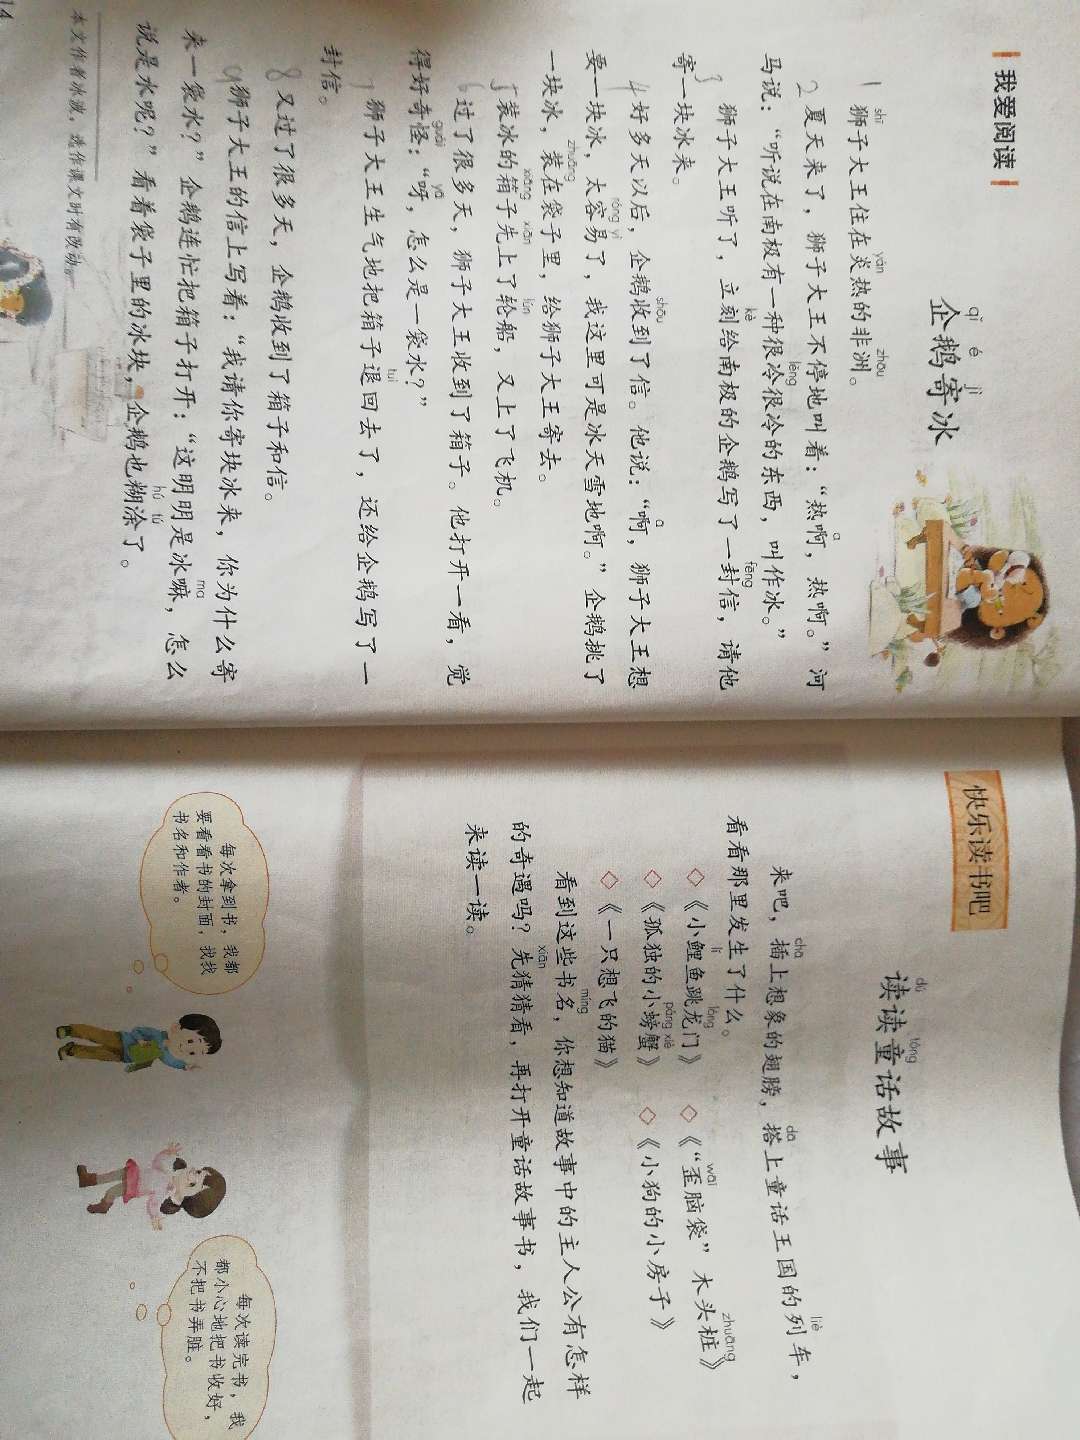 我爱阅读
qǐ é jì
企鹅寄冰
shī yán zhōu
1 狮子大王住在炎热的非洲。
a
2 夏天来了，狮子大王不停地叫着：“热啊，热啊。”河
lěng
马说：“听说在南极有一种很冷很冷的东西，叫作冰。”
kè fēng
3 狮子大王听了，立刻给南极的企鹅写了一封信，请他
寄一块冰来。
shōu a
4 好多天以后，企鹅收到了信。他说：“啊，狮子大王想
róng yì
要一块冰，太容易了，我这里可是冰天雪地啊。”企鹅挑了
zhuāng
一块冰，装在袋子里，给狮子大王寄去。
xiāng xiān lún
5 装冰的箱子先上了轮船，又上了飞机。
6 过了很多天，狮子大王收到了箱子。他打开一看，觉
guài yā
得好奇怪：“呀，怎么是一袋水？”
tuì
7 狮子大王生气地把箱子退回去了，还给企鹅写了一
封信。
8 又过了很多天，企鹅收到了箱子和信。
9 狮子大王的信上写着：“我请你寄块冰来，你为什么寄
ma
来一袋水？”企鹅连忙把箱子打开：“这明明是冰嘛，怎么
hú tú
说是水呢？”看着袋子里的冰块，企鹅也糊涂了。
本文作者冰波，选作课文时有改动。
14
快乐读书吧
dú tóng
读读童话故事
chā dā liè
来吧，插上想象的翅膀，搭上童话王国的列车，
看看那里发生了什么。
lǐ lóng wāi zhuāng
◇《小鲤鱼跳龙门》 ◇《“歪脑袋”木头桩》
páng xiè
◇《孤独的小螃蟹》 ◇《小狗的小房子》
◇《一只想飞的猫》
míng
看到这些书名，你想知道故事中的主人公有怎样
xiān
的奇遇吗？先猜猜看，再打开童话故事书，我们一起
来读一读。
每次拿到书，我都
要看看书的封面，找找
书名和作者。
每次读完书，我
都小心地把书收好，
不把书弄脏。